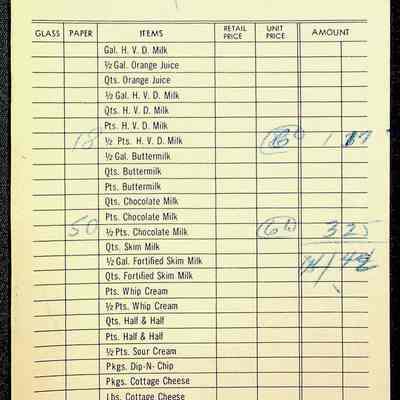 GLASS PAPER ITEMS RETAIL PRICE UNIT PRICE AMOUNT
Gal. H. V. D. Milk
½ Gal. Orange Juice
Qts. Orange Juice
½ Gal. H. V. D. Milk
Qts. H. V. D. Milk
Pts. H. V. D. Milk
18 ½ Pts. H. V. D. Milk 1 17
½ Gal. Buttermilk
Qts. Buttermilk
Pts. Buttermilk
Qts. Chocolate Milk
Pts. Chocolate Milk
50 ½ Pts. Chocolate Milk 6½ 3 25
Qts. Skim Milk
½ Gal. Fortified Skim Milk
Qts. Fortified Skim Milk
Pts. Whip Cream
½ Pts. Whip Cream
Qts. Half & Half
Pts. Half & Half
½ Pts. Sour Cream
Pkgs. Dip-N- Chip
Pkgs. Cottage Cheese
Lbs. Cottage Cheese